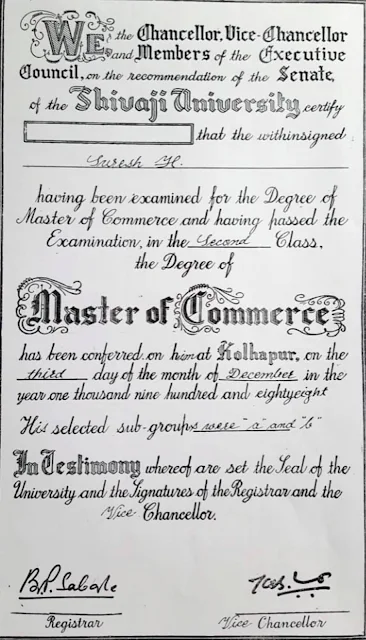 WE, the Chancellor, Vice-Chancellor
and Members of the Executive
Council, on the recommendation of the Senate,
of the Shivaji University, certify
that the withinsigned
Suresh H.
having been examined for the Degree of
Master of Commerce and having passed the
Examination, in the Second Class,
the Degree of
Master of Commerce
has been conferred on him at Kolhapur, on the
third day of the month of December in the
year one thousand nine hundred and eightyeight
His selected sub-groups were "a" and "b"
In Testimony whereof are set the Seal of the
University and the Signatures of the Registrar and the
Vice Chancellor.
B.P. Sabale
Registrar Vice Chancellor